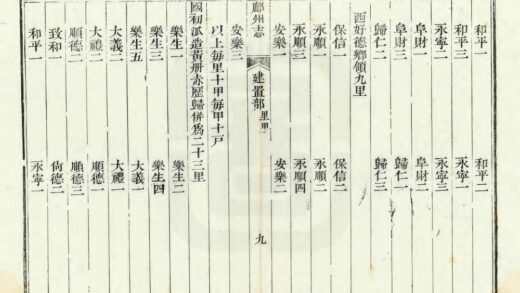 和平一　和平二
和平三　永寧一
永寧二　永寧三
阜財一　阜財二
阜財三　歸仁一
歸仁二　歸仁三
西好德鄉領九里
保信一　保信二
永順一　永順二
永順三　永順四
安樂一　安樂二
鄜州志　建置部　里里　九
安樂三
以上每里十甲每甲十戶
國初派造黃册赤歷歸併為二十三里
樂生一　樂生二
樂生三　樂生四
樂生五　大義一
大義二　大禮一
大禮二　順德一
順德二　順德三
致和　尙德二
和平一　永寧一